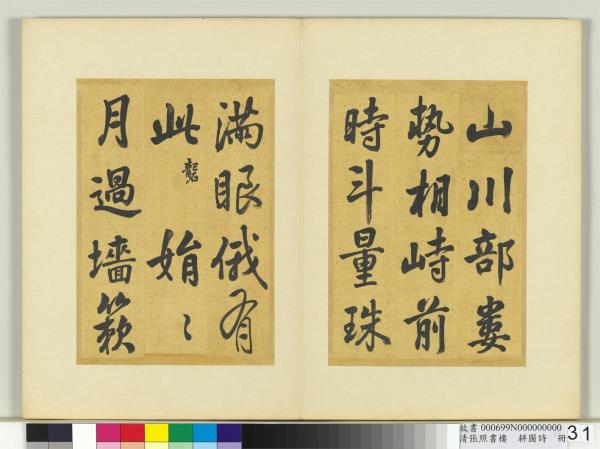 山川部婁
勢相峙前
時斗量珠
滿眼俄有
此 礱 娟〻
月過墻簌
故書 000699N000000000
清張照書樓 耕圖詩 冊
31